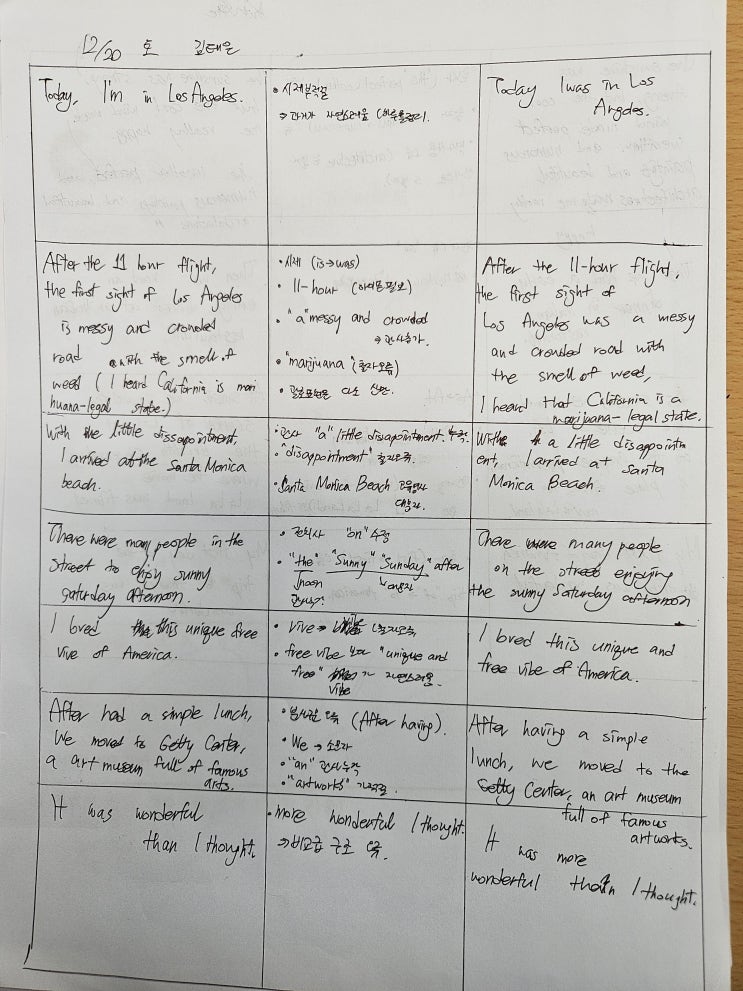 12/20 토 김태은
Today, I'm in Los Angeles.
• 시제부적절
⇒ 과거가 자연스러움 (하루를정리).
Today I was in Los
Angeles.
After the 11 hour flight,
the first sight of Los Angeles
is messy and crowded
road with the smell of
weed (I heard California is mari
huana-legal state.)
• 시제 (is→was)
• 11-hour (하이픈필요)
• "a" messy and crowded
→ 관사추가.
• "marijuana" (철자오류)
• 괄호표현은 다소 산만.
After the 11-hour flight,
the first sight of
Los Angeles was a messy
and crowded road with
the smell of weed,
I heard that California is a
marijuana-legal state.
With the little dissappointment,
I arrived at the Santa Monica
beach.
• 관사 "a" little disappointment. 누락.
• "disappointment" 철자오류.
• Santa Monica Beach 고유명사
대문자.
With a little disappointm
ent, I arrived at Santa
Monica Beach.
There were many people in the
street to enjoy sunny
saturday afternoon.
• 전치사 "on" 수정
• "the" "Sunny" "Sunday" after
noon
관사추가. 대문자
There were many people
on the street enjoying
the sunny Saturday afternoon
I loved this unique free
vive of America.
• vive → vibe (철자오류
• free vibe 보다 "unique and
free" vibe 가 자연스러움.
I loved this unique and
free vibe of America.
After had a simple lunch,
We moved to Getty Center,
a art museum full of famous
arts.
• 분사구문 오류 (After having).
• We → 소문자
• "an" 관사누락
• "artworks"
After having a simple
lunch, we moved to the
Getty Center, an art museum
full of famous
artworks.
It was wonderful
than I thought.
• more wonderful I thought.
⇒ 비교급 구조 오류.
It was more
wonderful than I thought.